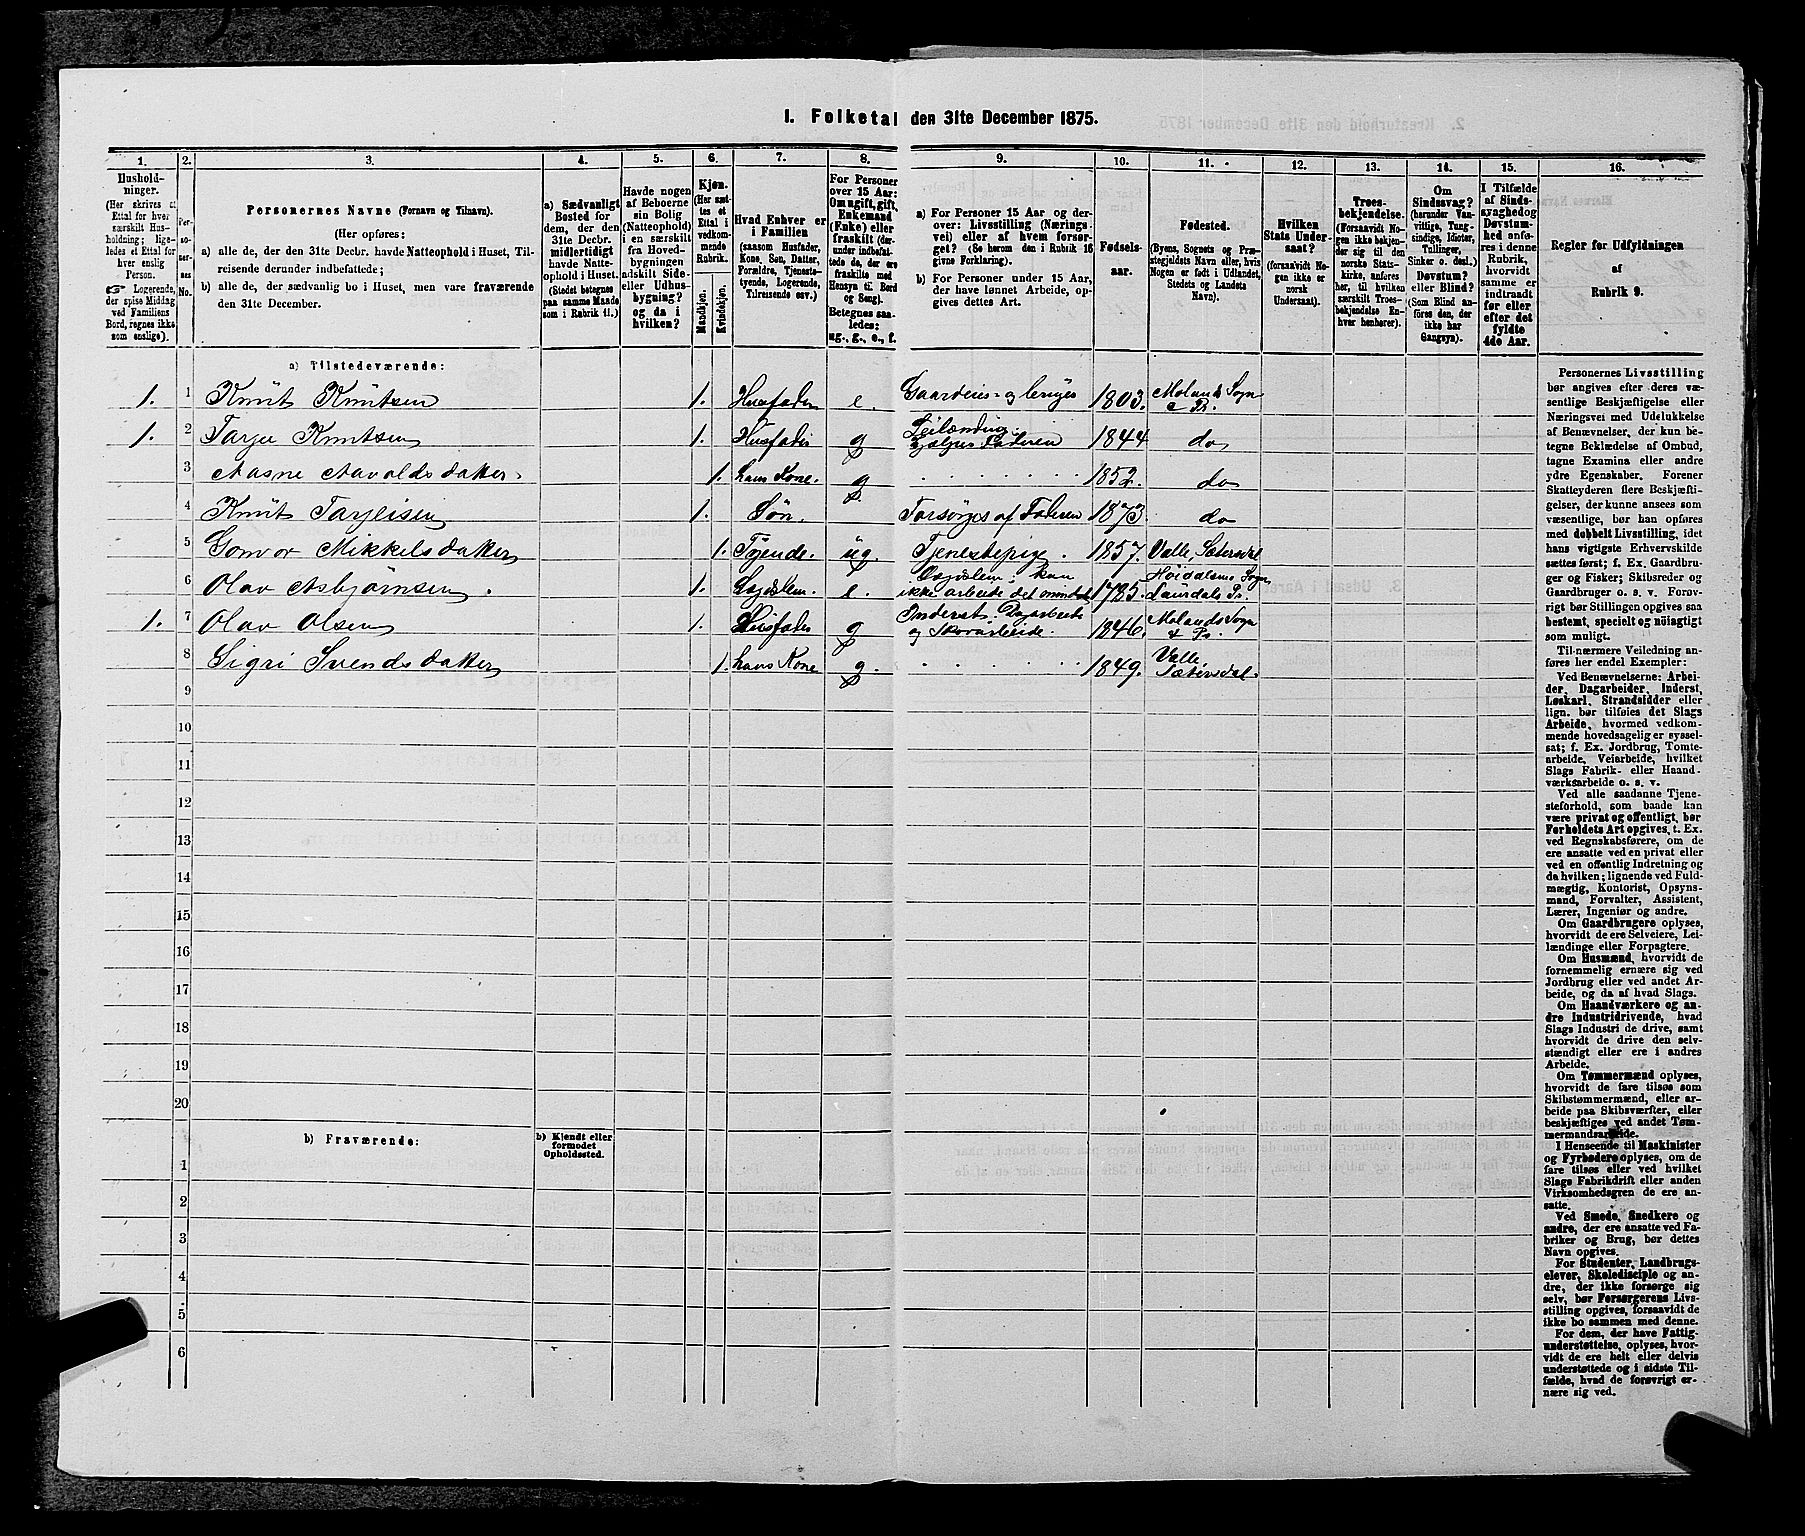 I. Folketal den 31te December 1875.
1. 2. 3. 4. 5. 6. 7. 8. 9. 10. 11. 12. 13. 14. 15. 16.
Hushold-
ninger.
(Her skrives et
Ettal for hver
særskilt Hus-
holdning; lige-
ledes et Ettal for
hver enslig
Person.
☞ Logerende,
der spise Middag
ved Familiens
Bord, regnes ikke
som enslige).
Per-
so-
ner-
nes
No.
Personernes Navne (Fornavn og Tilnavn).
(Her opføres:
a) alle de, der den 31te Decbr. havde Natteophold i Huset, Til-
reisende derunder indbefattede;
b) alle de, der sædvanlig bo i Huset, men vare fraværende
den 31te December.
a) Sædvanligt
Bosted for
dem, der den
31te Decbr.
midlertidigt
havde Natte-
ophold i Huset.
(Stedet betegnes
paa samme Maade
som i Rubrik 11.)
Havde nogen
af Beboerne
sin Bolig
(Natteophold)
i en særskilt
fra Hoved-
bygningen
adskilt Side-
eller Udhus-
bygning?
og da i
hvilken?
Kjøn.
(Her sæt-
tes et
Ettal i
vedkom-
mende
Rubrik.
Mandkjøn.
Kvindekjøn.
Hvad Enhver er
i Familien
(saasom Husfader,
Kone, Søn, Datter,
Forældre, Tjeneste-
tyende, Logerende,
Tilreisende osv.)
For Personer
over 15 Aar:
Om ugift, gift,
Enkemand
(Enke) eller
fraskilt (der-
under indbefat-
tede de, der ere
fraskilte med
Hensyn til Bord
og Seng).
Betegnes saa-
ledes:
ug., g., e., f.
a) For Personer 15 Aar og der-
over: Livsstilling (Nærings-
vei) eller af hvem forsør-
get? (Se herom den i Rubrik 16
givne Forklaring).
b) For Personer under 15 Aar,
der have lønnet Arbeide, op-
gives dettes Art.
Fødsels-
aar.
Fødested.
(Byens, Sognets og Præ-
stegjeldets Navn eller, hvis
Nogen er født i Udlandet,
Stedets og Landets
Navn).
Hvilken
Stats Under-
saat?
(forsaavidt No-
gen ikke er
norsk
Undersaat).
Troes-
bekjendelse.
(Forsaavidt No-
gen ikke bekjen-
der sig til den
norske Stats-
kirke, anføres
her, til hvilken
særskilt Troes-
bekjendelse En-
hver henhører).
Om
Sindssvag?
(herunder Van-
vittige, Tung-
sindige, Idioter,
Tullinger,
Sinker o. desl.)
Døvstum?
eller Blind?
(Som Blind an-
føres den, der
ikke har
Gangsyn).
I Tilfælde
af Sinds-
svaghed og
Døvstum-
hed anfø-
res i denne
Rubrik,
hvorvidt
samme er
indtraadt
før eller
efter det
fyldte
4de Aar.
Regler for Udfyldningen
af
Rubrik 9.
a) Tilstedeværende:
1. 1 Knut Knutsen 1. Husfader e. Gaardeier og bruger 1803. Molands Sogn & Pr.
1. 2 Tarjei Knutsen 1. Husfader g Leilænding. hjelper Faderen 1844 do
3 Aasne Aavoldsdatter. 1. hans Kone. g . . . . . . 1852. do
4 Knut Tarjeisen 1. Søn. Forsørges af Faderen 1873. do
5 Gonvor Mikkelsdatter 1. Tyende. ug. Tjenestepige. 1857. Valle Sætersdal
6 Olav Asbjørnsen. 1. Lægdslem. e. Lægdslem; kan ikke arbeide det mindste 1785. Høidalsmo Sogn Laurdals Pr.
1. 7 Olav Olsen 1. Husfader g Inderst. Dagarbeide og Skovarbeide. 1846. Molands Sogn & Pr.
8 Sigri Svendsdatter 1. hans Kone g. . . . . . . 1849. Valle Sætersdal.
9
10
11
12
13
14
15
16
17
18
19
20
b) Fraværende:
b) Kjendt eller
formodet
Opholdssted.
1
2
3
4
5
6
Personernes Livsstilling
bør angives efter deres væ-
sentlige Beskjæftigelse eller
Næringsvei med Udelukkelse
af Benævnelser, der kun be-
tegne Beklædelse af Ombud,
tagne Examina eller andre
ydre Egenskaber. Forener
Skatteyderen flere Beskjæfti-
gelser, der kunne ansees som
væsentlige, bør han opføres
med dobbelt Livsstilling, idet
hans vigtigste Erhvervskilde
sættes først; f. Ex. Gaardbru-
ger og Fisker; Skibsreder og
Gaardbruger o. s. v. Forøv-
rigt bør Stillingen opgives saa
bestemt, specielt og nøiagtigt
som muligt.
Til nærmere Veiledning an-
føres her endel Exempler:
Ved Benævnelserne: Arbei-
der, Dagarbeider, Inderst,
Løskarl, Strandsidder eller
lign. bør tilføies det Slags
Arbeide, hvormed vedkom-
mende hovedsagelig er syssel-
sat; f. Ex. Jordbrug, Tomte-
arbeide, Veiarbeide, hvilket
Slags Fabrik- eller Haand-
værksarbeide o. s. v.
Ved alle saadanne Tjene-
steforhold, som baade kan
være privat og offentligt, bør
Forholdets Art opgives, t. Ex.
ved Regnskabsførere, om de
ere ansatte ved en privat eller
ved en offentlig Indretning og
da hvilken; lignende ved Fuld-
mægtig, Kontorist, Opsyns-
mand, Forvalter, Assistent,
Lærer, Ingeniør og andre.
Om Gaardbrugere oplyses,
hvorvidt de ere Selveiere, Lei-
lændinge eller Forpagtere.
Om Husmænd, hvorvidt de
fornemmelig ernære sig ved
Jordbrug eller ved andet Ar-
beide, og da af hvad Slags.
Om Haandværkere og an-
dre Industridrivende, hvad
Slags Industri de drive, samt
hvorvidt de drive den selv-
stændigt eller ere i andres
Arbeide.
Om Tømmermænd oplyses,
hvorvidt de fare tilsøs som
Skibstømmermænd, eller ar-
beide paa Skibsværfter, eller
beskjæftiges ved andet Tøm-
mermandsarbeide.
I Henseende til Maskinister
og Fyrbødere oplyses, om de
fare tilsøs eller ved hvilket
Slags Fabrikdrift eller anden
Virksomhedsgren de ere an-
satte.
Ved Smede, Snedkere og
andre, der ere ansatte ved Fa-
briker og Brug, bør dettes
Navn opgives.
For Studenter, Landbrugs-
elever, Skoledisciple og an-
dre, der ikke forsørge sig
selv, bør Forsørgerens Livs-
stilling opgives, forsaavidt de
ikke bo sammen med denne.
For dem, der have Fattig-
understøttelse, oplyses, hvor-
vidt de ere helt eller delvis
understøttede og i sidste Til-
fælde, hvad de forøvrigt er-
nære sig ved.